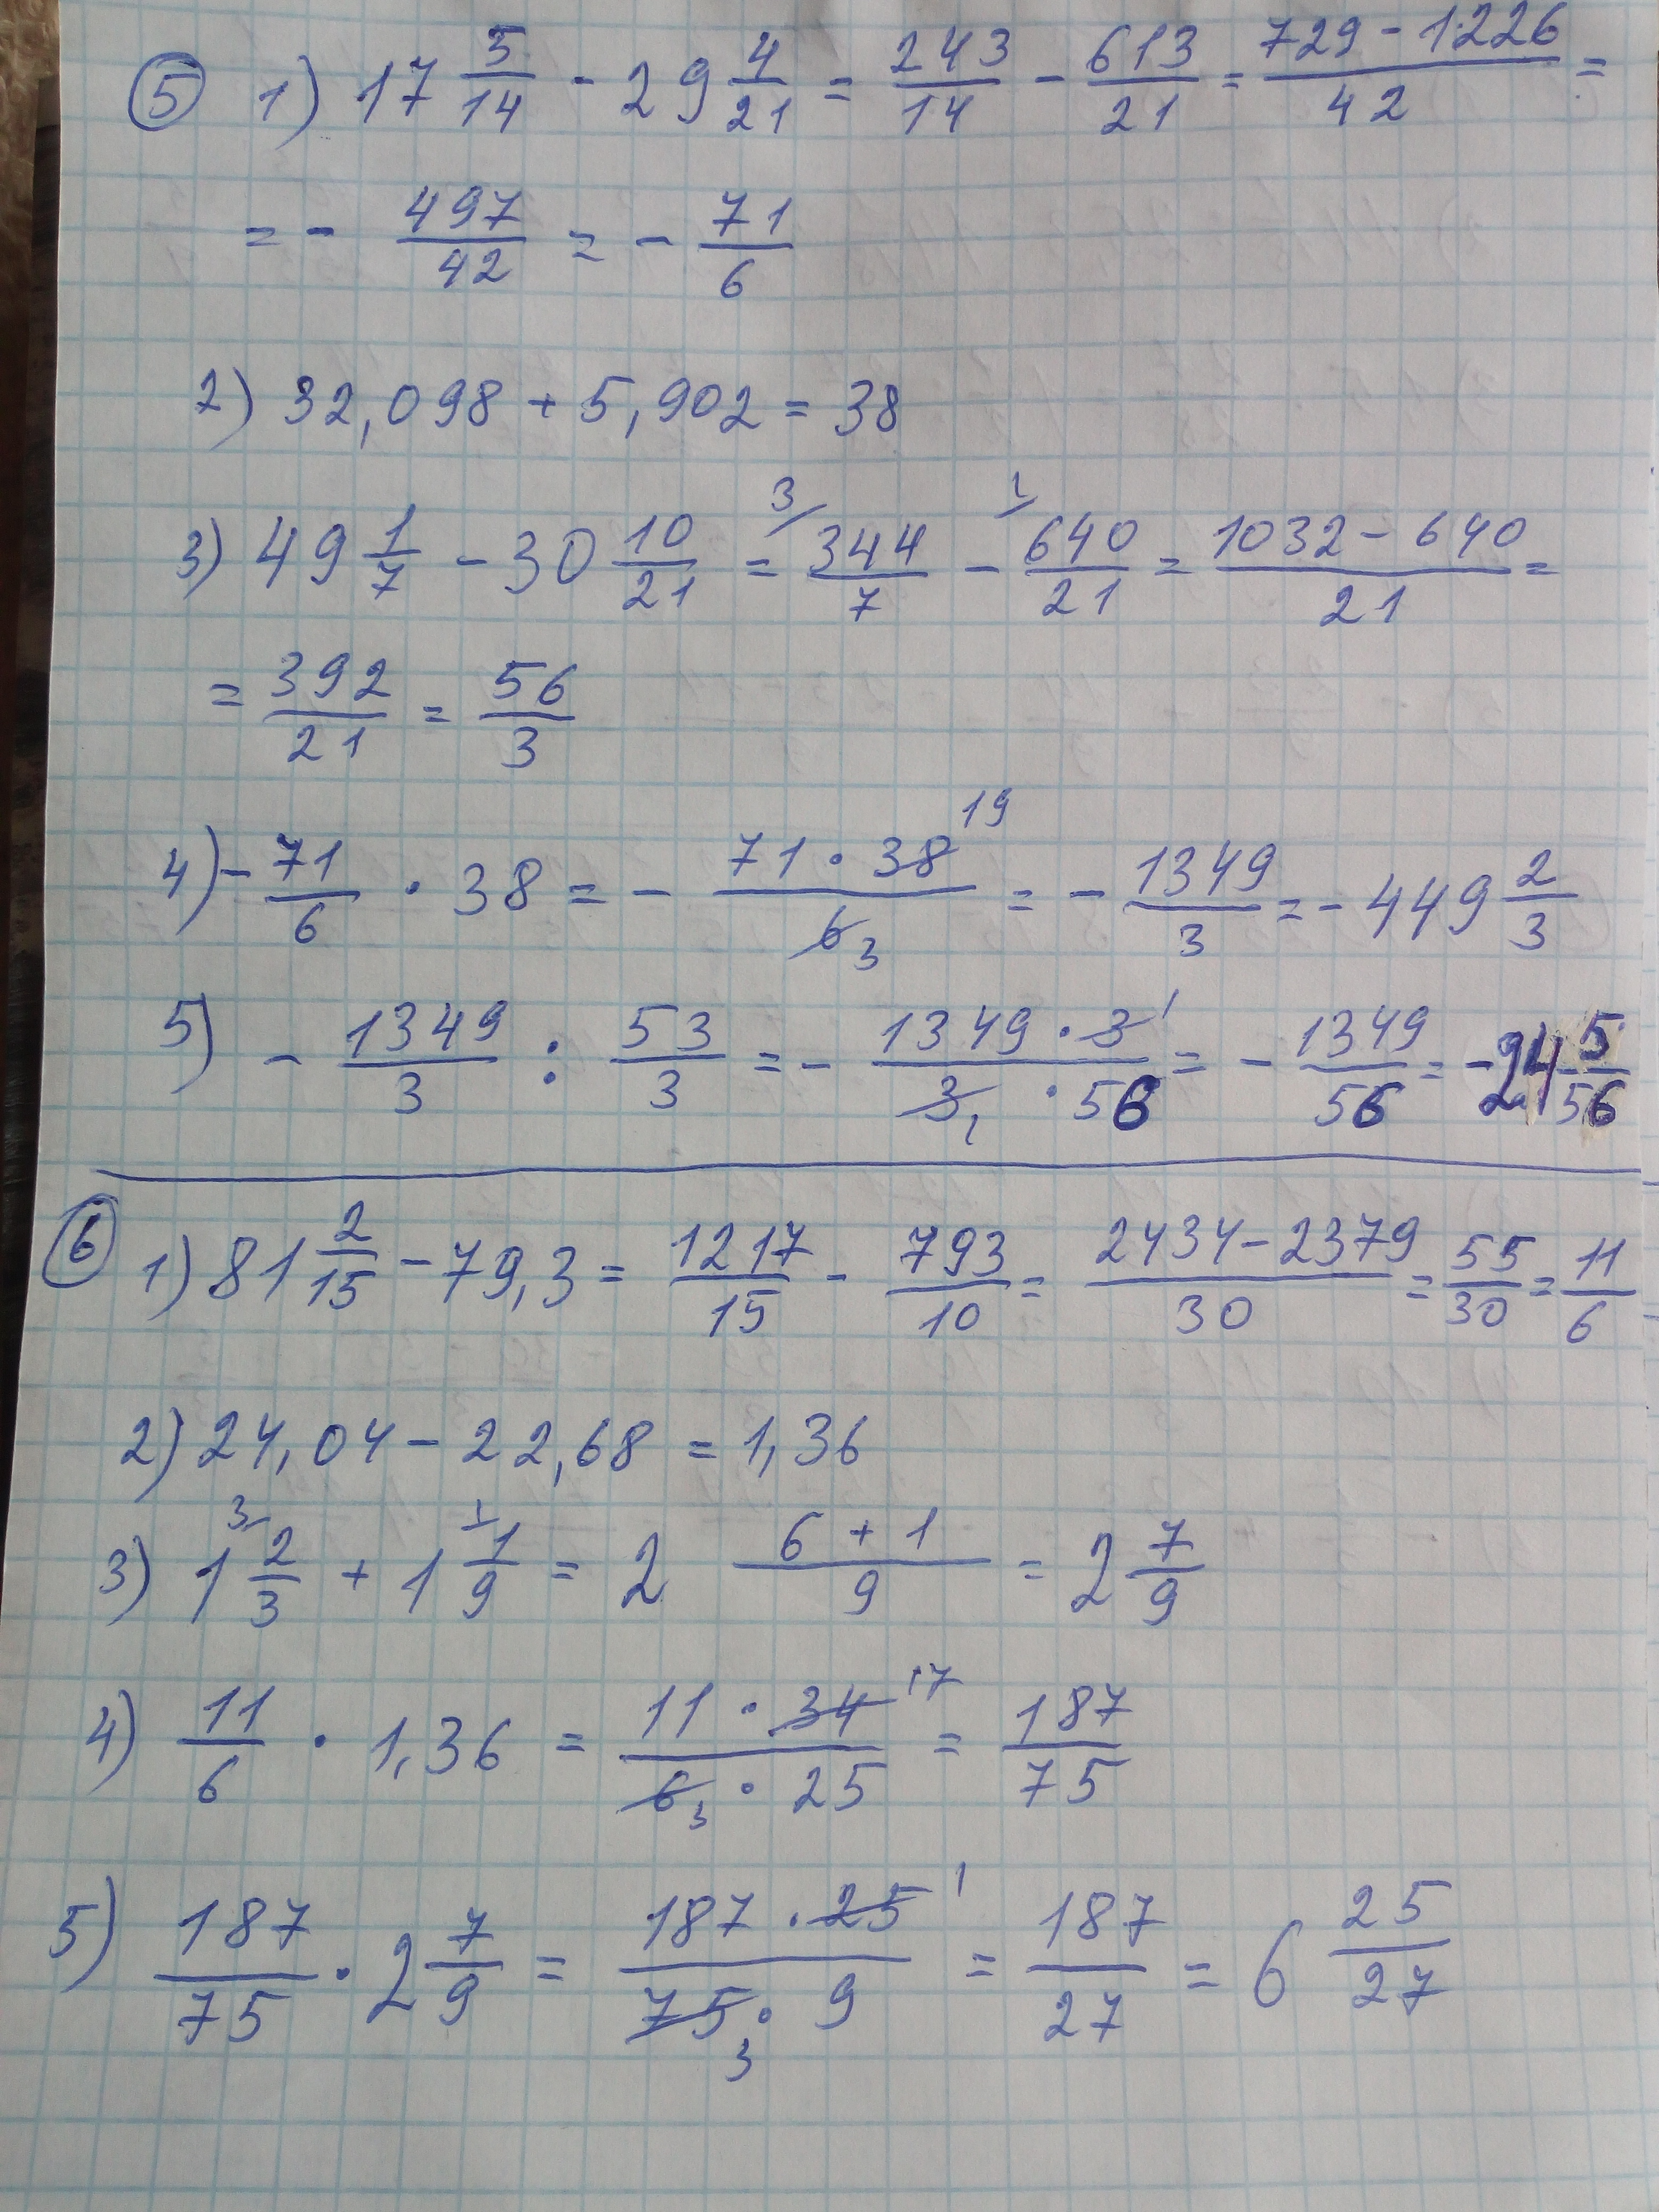 5 1) 17 5/14 - 29 4/21 = 243/14 - 613/21 = 729 - 1226/42 =
= - 497/42 = - 71/6
2) 32,098 + 5,902 = 38
3) 49 1/7 - 30 10/21 = 3/ 344/7 - 1/ 640/21 = 1032 - 640/21 =
= 392/21 = 56/3
4) - 71/6 · 38 = - 71 · 38 19/6 3 = - 1349/3 = - 449 2/3
5) - 1349/3 : 53/3 = - 1349 · 3 1/3 1 · 56 = - 1349/56 = - 24 5/56
6 1) 81 2/15 - 79,3 = 1217/15 - 793/10 = 2434 - 2379/30 = 55/30 = 11/6
2) 24,04 - 22,68 = 1,36
3) 1 3/ 2/3 + 1 1/ 1/9 = 2 6 + 1/9 = 2 7/9
4) 11/6 · 1,36 = 11 · 34 17/6 3 · 25 = 187/75
5) 187/75 · 2 7/9 = 187 · 25 1/75 3 · 9 = 187/27 = 6 25/27